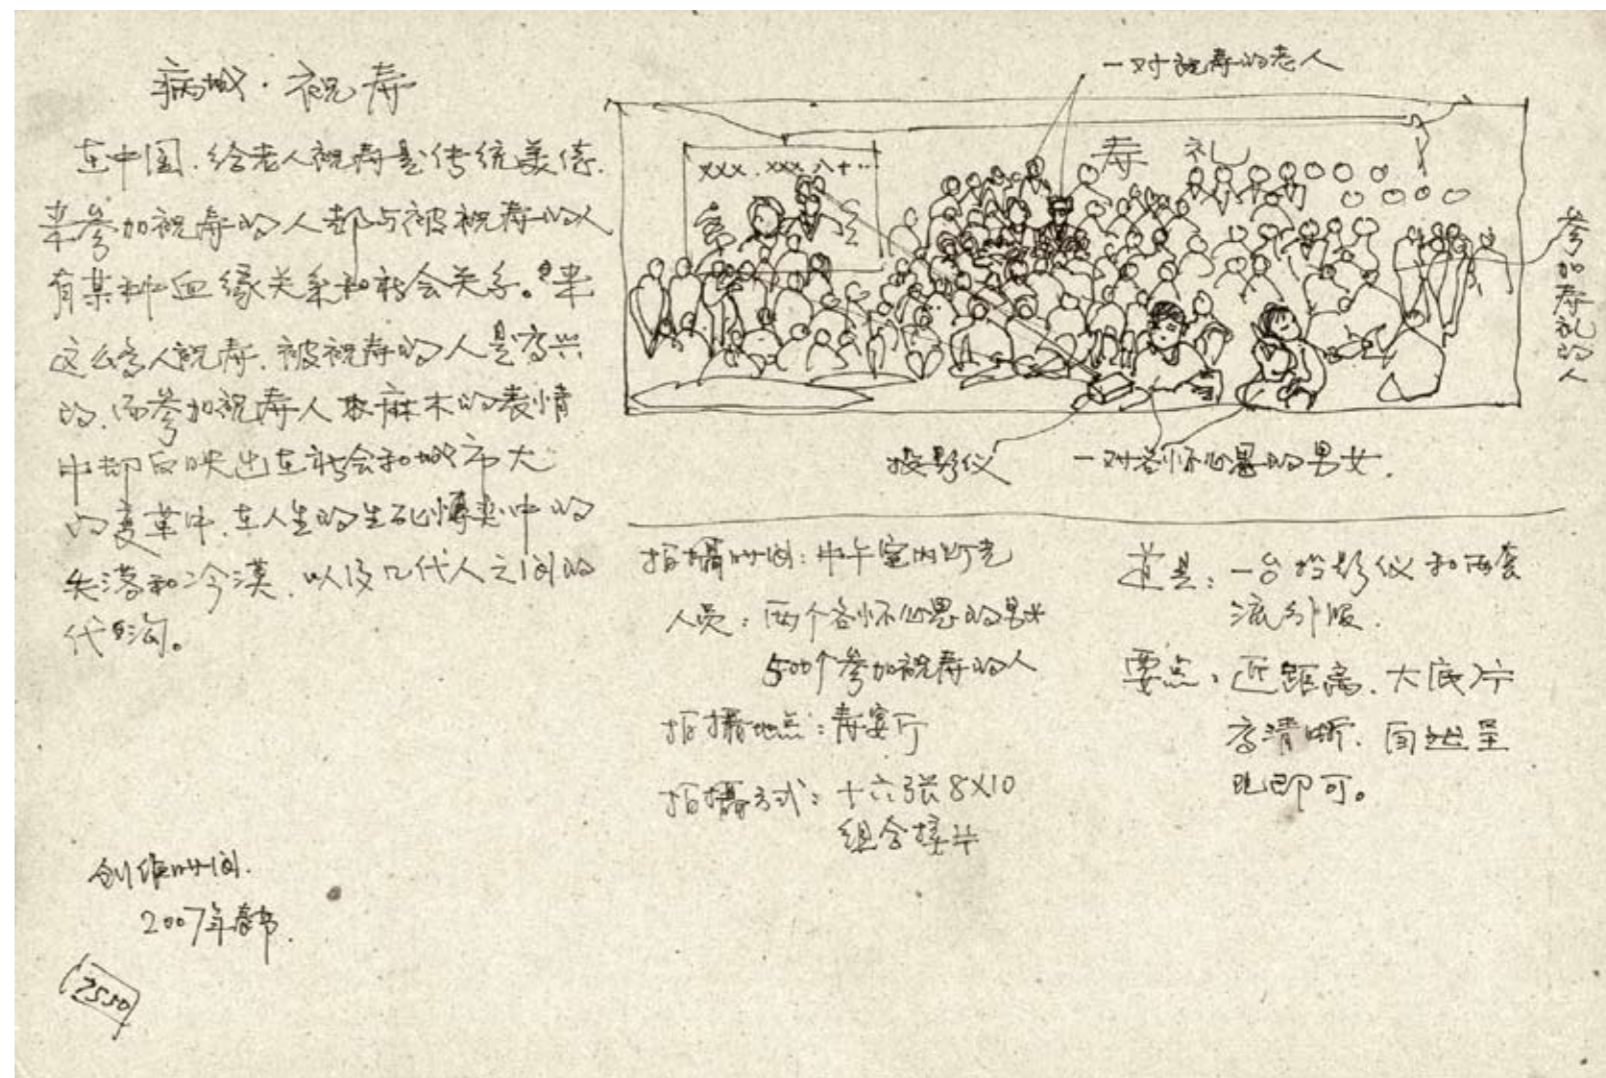 病城·祝寿
在中国.给老人祝寿是传统美德.
来参加祝寿的人都与被祝寿的人
有某种血缘关系和社会关系。来
这么多人祝寿.被祝寿的人是高兴
的.而参加祝寿人麻木的表情
中却反映出在社会和城市大
的变革中.在人生的生死博弈中的
失落和冷漠.以及几代人之间的
代沟。
创作时间.
2007年春节.
一对祝寿的老人
寿 礼
xxx.xxx.八十…
参加寿礼的人
投影仪
一对各怀心思的男女.
拍摄时间:中午室内灯光
人员:两个各怀心思的男女
500个参加祝寿的人
拍摄地点:寿宴厅
拍摄方式:十六张8X10
组合接片
道具:一台投影仪和两套
演出服.
要点:近距离.大底片
高清晰.自然呈
现即可。